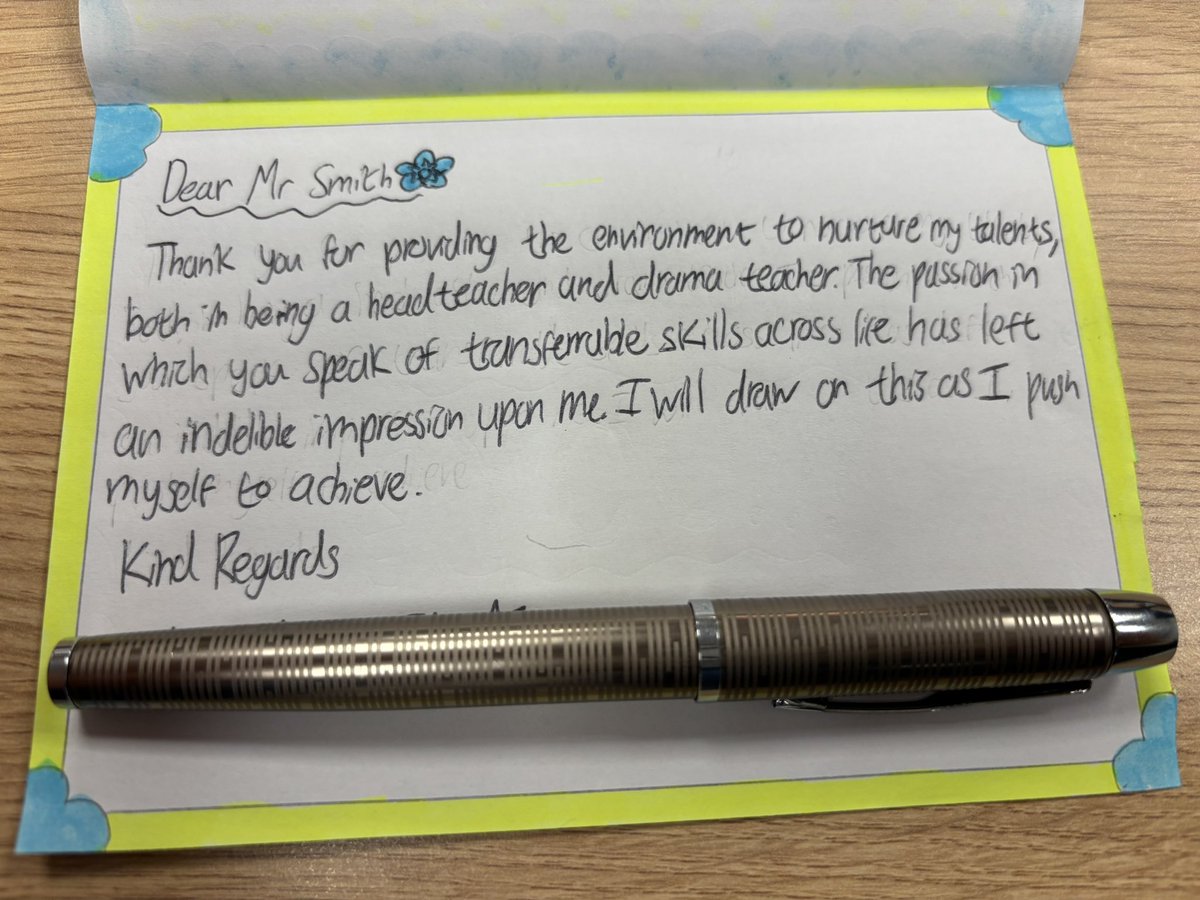 Dear Mr Smith
Thank you for providing the environment to nurture my talents,
both in being a headteacher and drama teacher. The passion in
which you speak of transferrable skills across life has left
an indelible impression upon me. I will draw on this as I push
myself to achieve.
Kind Regards